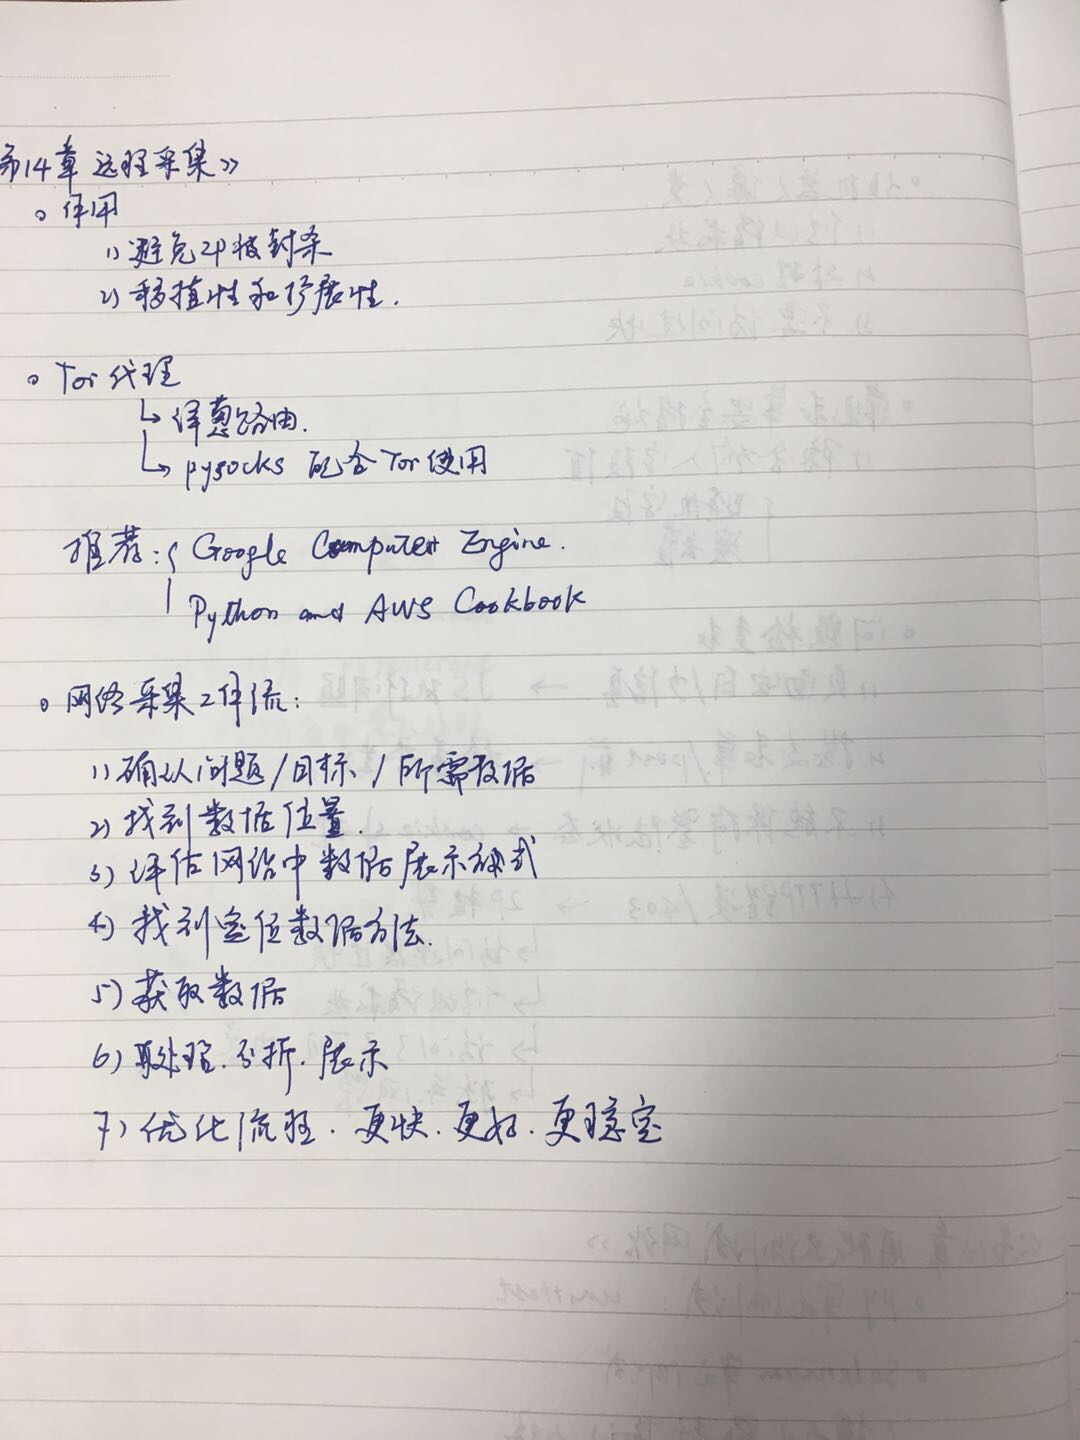 第14章 远程采集》
。作用
1) 避免IP被封杀
2) 移植性和扩展性.
。Tor代理
↳ 洋葱路由.
↳ pysocks 配合Tor使用
推荐:{ Google Computer Engine.
Python and AWS Cookbook
。网络采集工作流:
1) 确认问题/目标/所需数据
2) 找到数据位置.
3) 评估网络中数据展示形式
4) 找到定位数据方法.
5) 获取数据
6) 再处理.分析.展示
7) 优化流程.更快.更好.更稳定